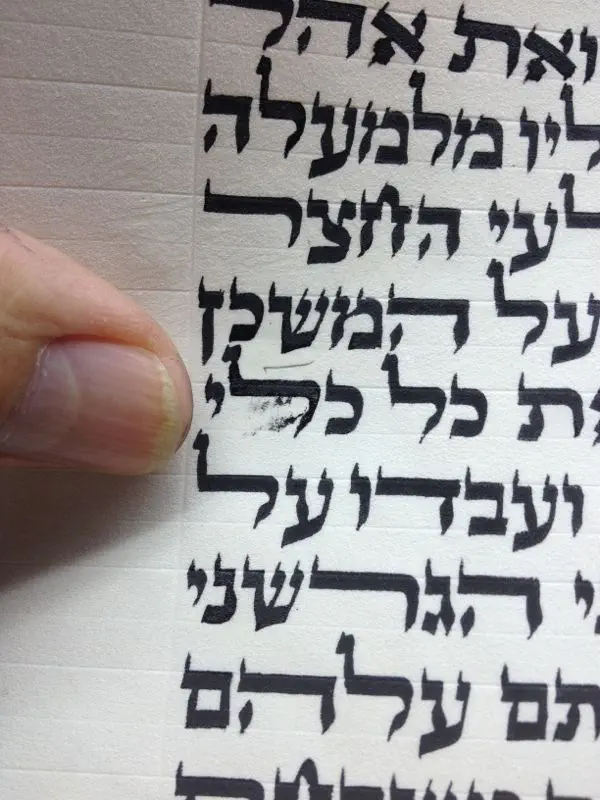 ואת אהל
ליו מלמעלה
לעי החצר
על המשכן
את כל כלי
ועבדו על
י הגרשני
תם עלהם